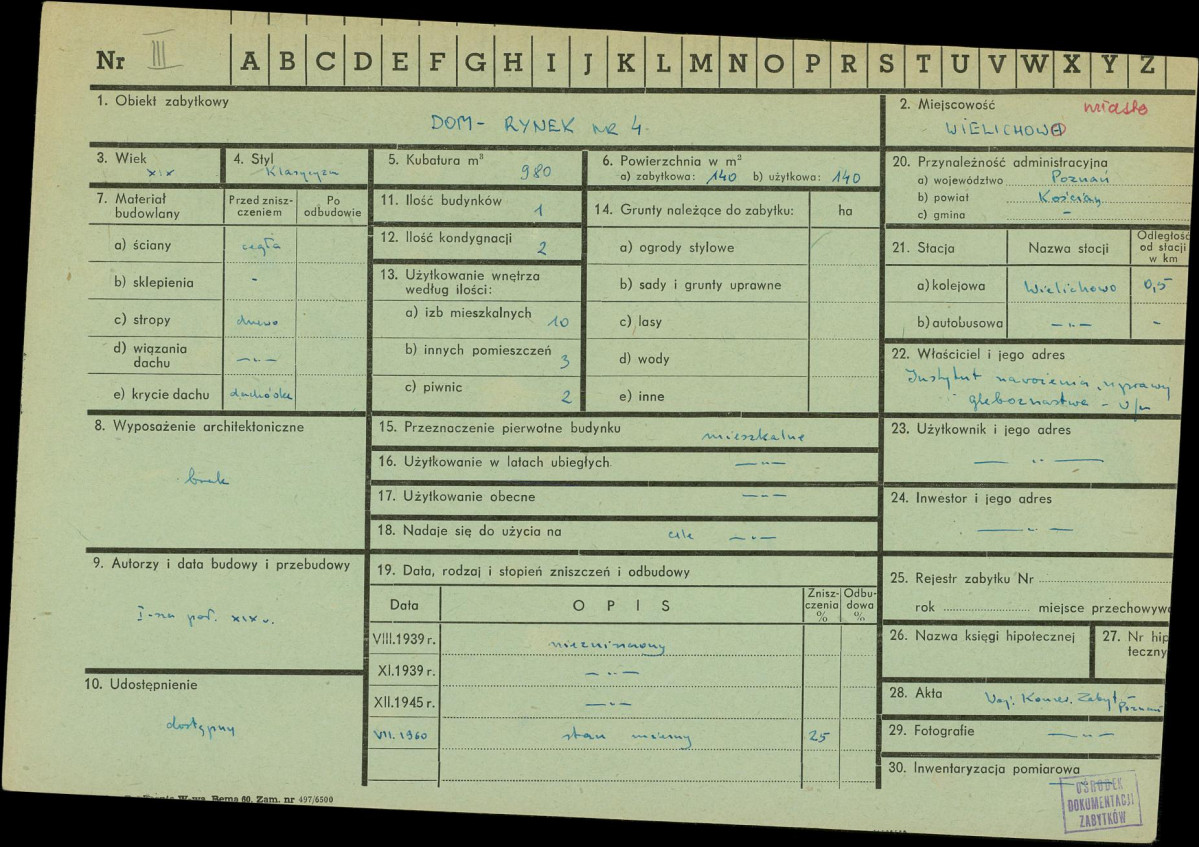 Nr III A B C D E F G H I J K L M N O P R S T U V W X Y Z
1. Obiekt zabytkowy
DOM - RYNEK NR 4
2. Miejscowość miasto
WIELICHOWO
3. Wiek
XIX
4. Styl
Klasycyzm
5. Kubatura m³
980
6. Powierzchnia w m²
a) zabytkowa: 140 b) użytkowa: 140
20. Przynależność administracyjna
a) województwo Poznań
b) powiat Kościan
c) gmina -
7. Materiał budowlany
Przed zniszczeniem
Po odbudowie
a) ściany cegła
b) sklepienia -
c) stropy drewno
d) wiązania dachu —„—
e) krycie dachu dachówka
11. Ilość budynków 1
12. Ilość kondygnacji 2
13. Użytkowanie wnętrza według ilości:
a) izb mieszkalnych 10
b) innych pomieszczeń 3
c) piwnic 2
14. Grunty należące do zabytku: ha
a) ogrody stylowe
b) sady i grunty uprawne
c) lasy
d) wody
e) inne
21. Stacja Nazwa stacji Odległość od stacji w km
a) kolejowa Wielichowo 0,5
b) autobusowa —„— -
22. Właściciel i jego adres
Instytut nawożenia, uprawy
gleboznastwa -
8. Wyposażenie architektoniczne
brak
15. Przeznaczenie pierwotne budynku mieszkalne
16. Użytkowanie w latach ubiegłych —„—
17. Użytkowanie obecne —„—
18. Nadaje się do użycia na cele —„—
23. Użytkownik i jego adres
—„—
24. Inwestor i jego adres
—„—
9. Autorzy i data budowy i przebudowy
I-sza poł. XIX w.
19. Data, rodzaj i stopień zniszczeń i odbudowy
Data OPIS Zniszczenia % Odbudowa %
VIII.1939 r. niezniszczony
XI.1939 r. —„—
XII.1945 r. —„—
VII.1960 stan mierny 25
10. Udostępnienie
dostępny
25. Rejestr zabytku Nr
rok miejsce przechowyw
26. Nazwa księgi hipotecznej
27. Nr hip
teczny
28. Akta Woj. Konser. Zabyt. - Poznań
29. Fotografie —„—
30. Inwentaryzacja pomiarowa
OŚRODEK
DOKUMENTACJI
ZABYTKÓW
W-wa, Berna 60. Zam. nr 497/6500